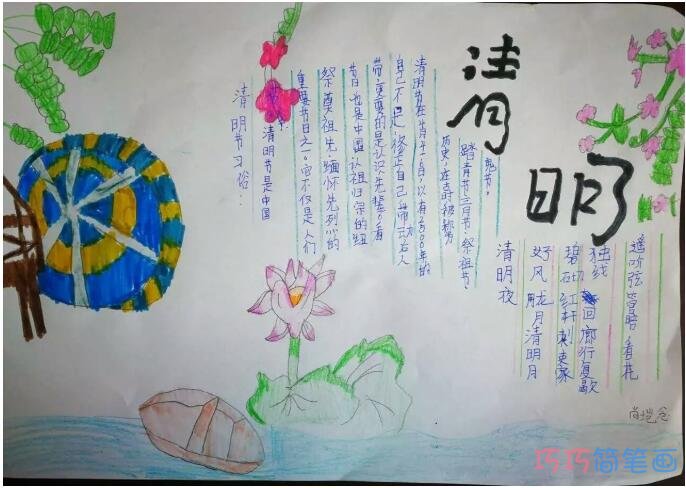 清明
清明节习俗：
节。清明节是中国
重要节日之一。它不仅是人们
祭奠祖先,缅怀先烈的
节日也是中国认祖归宗的纽
带,更要的是认识先辈。看
自己不足,修正自己带动后人
清明节在 以有2500年的
历史,在古时被称为
踏青节三月节、祭祖节、
鬼节。
清明夜
好风胧月清明月
碧砌红轩刺史家
独线回廊行复歇
遥听弦管暗看花
巧巧简笔画